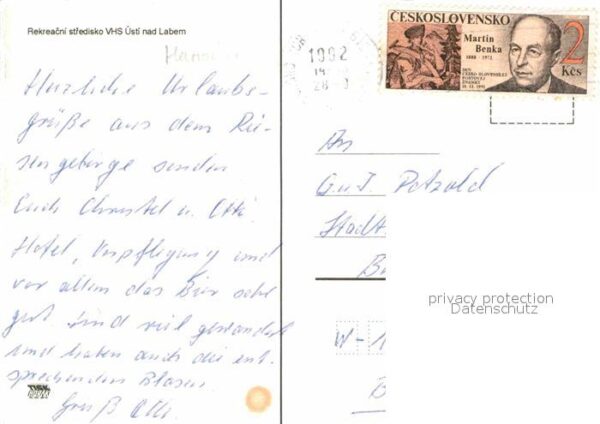 Rekreační středisko VHS Ústí nad Labem
Herzliche Urlaubs-
grüße aus dem Rie-
sengebirge senden
Euch Christel u. Otti.
Hotel, Verpflegung und
vor allem das Bier sehr
gut. Sind viel gewandert
und haben auch die ent-
sprechenden Blasen.
Gruß Otti.
ČESKOSLOVENSKO
Martin
Benka
1888 - 1971
DEN
ČESKO-SLOVENSKEJ
POŠTOVEJ
ZNÁMKY
18. 12. 1991
2
Kčs
1992
An
G. u. I. Petzold
Stadt
W-1
B
privacy protection
Datenschutz